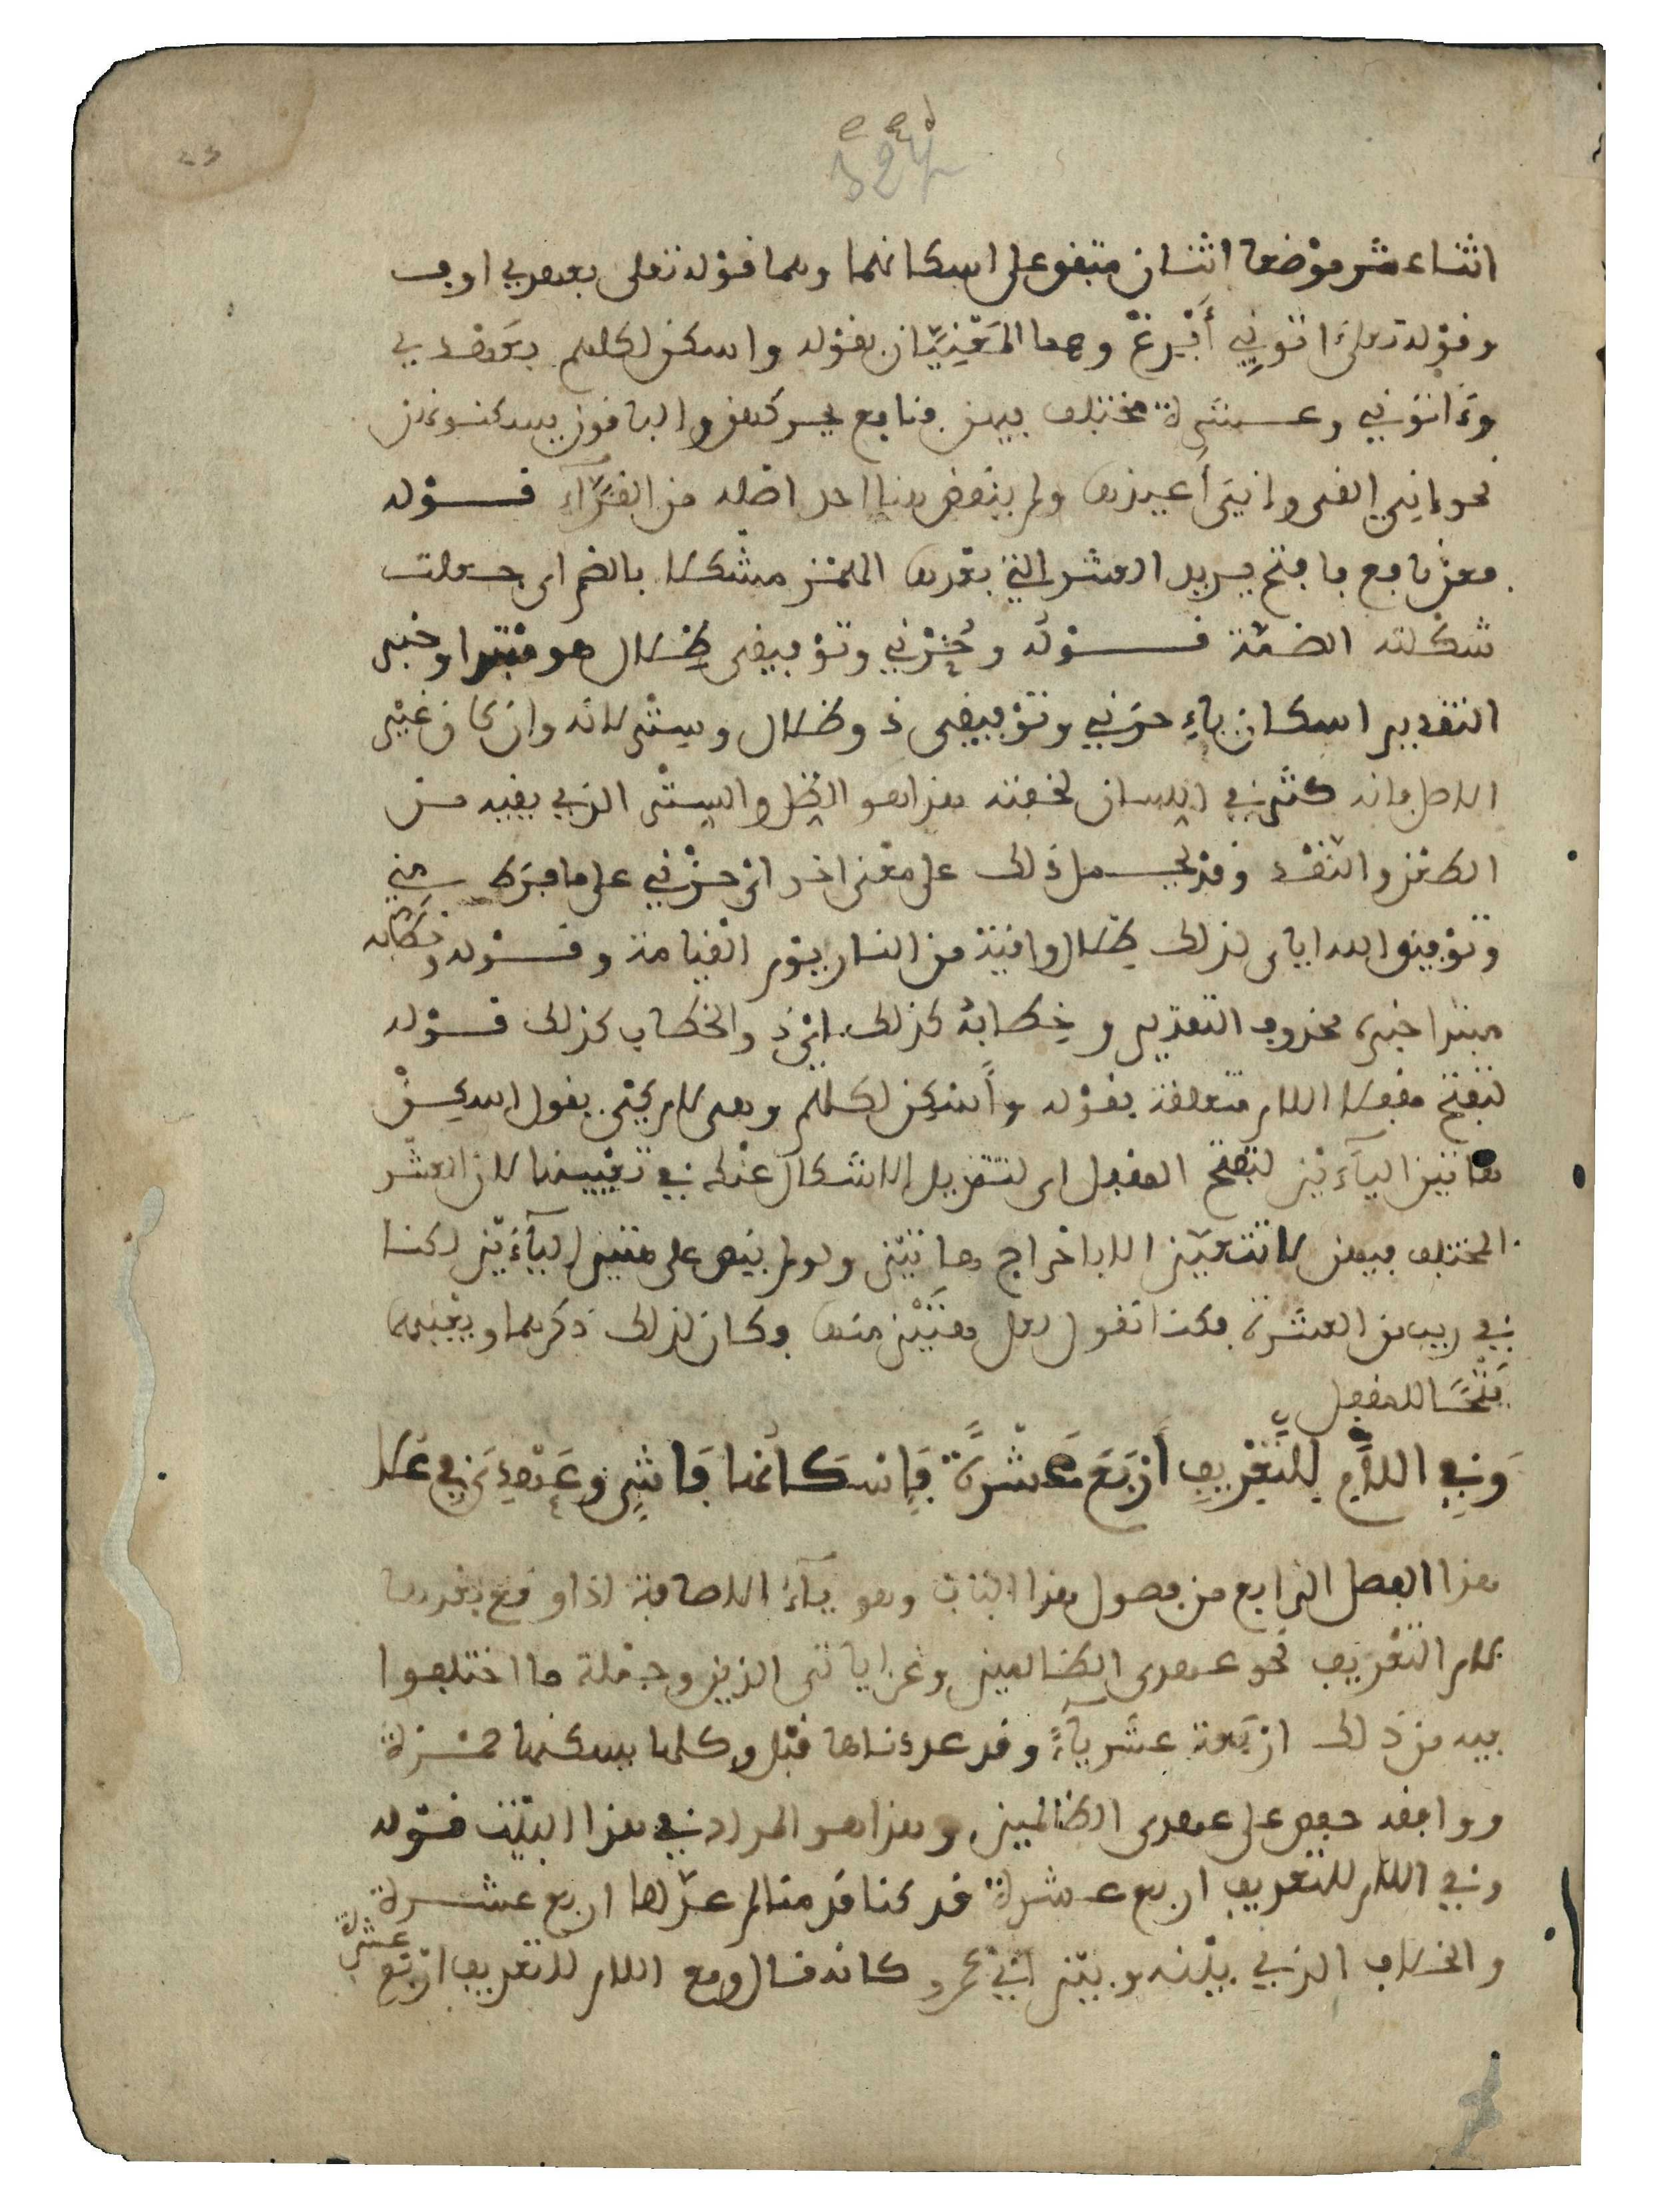 اثنا عشر موضعا اثنان متفق على اسكانهما وهما قوله تعلى بعهدي اوف
وقوله تعلى اتوني أفرغ وهما المعنيان بقوله واسكن لكلهم بعهدي
وءاتوني وعشرة مختلف فيهن فنافع يحركهن والباقون يسكنونهن
نحو إني القي وإني أعيذها ولم ينقض هنا احد اصله من القرآء قوله
فعن نافع فافتح يريد العشر التي بعدها الهمز مشكلا بالضم اى جعلت
شكلته الضمة قوله وحزني وتوفيقي ظلال هو مبتدا وخبر
التقدير اسكان ياء حزني وتوفيقي ذو ظلال وستر لانه وان كان غير
الاصل فانه كثر في اللسان لخفته فهذا هو الظل والستر الذي يقيه من
الطعن والنقد وقد يحمل ذلك على معنى اخر اي حزني على ما فرط مني
وتوفيق الله اياى لذلك ظلال واقية من النار يوم القيامة وقوله وخطابه
مبتدا خبره محذوف التقدير وخطابه كذلك اي والخطاب كذلك قوله
لتفتح مقفلا اللام متعلقة بقوله وأسكن لكلهم وهى لام كي يقول اسكن
هاتين اليآءين لتفتح المقفل اى لتزيل الاشكال عنك في تعيينها لان العشر
المختلف فيهن لا تتعين الا باخراج هاتين ولو لم ينص على هتين اليآءين لكنا
في ريب من العشرة فكنا نقول لعل هتين منها فكان لذلك ذكرهما وتعيينهما
فتحا للمقفل
وَفِي اللَّامِ لِلتَّعْرِيفِ أَرْبَعَ عَشْرَةً فَإِسْكَانُهَا فَاشٍ وَعَهْدِيَ فِي عُلَا
هذا الفصل الرابع من فصول هذا الباب وهو يآء الاضافة اذا وقع بعدها
لام التعريف نحو عهدى الظالمين وعن اياتى الذين وجملة ما اختلفوا
فيه من ذلك اربعة عشر يآءً وقد عددناها قبل وكلها يسكنها حمزة
ووافقه حفص على عهدى الظالمين وهذا هو المراد في هذا البيت قوله
وفي اللام للتعريف اربع عشرة قد كنا قدمنا لم عدها اربع عشرة
والخلاف الذي بينه وبين ابي عمرو كانه قال ومع اللام للتعريف اربع عشرة